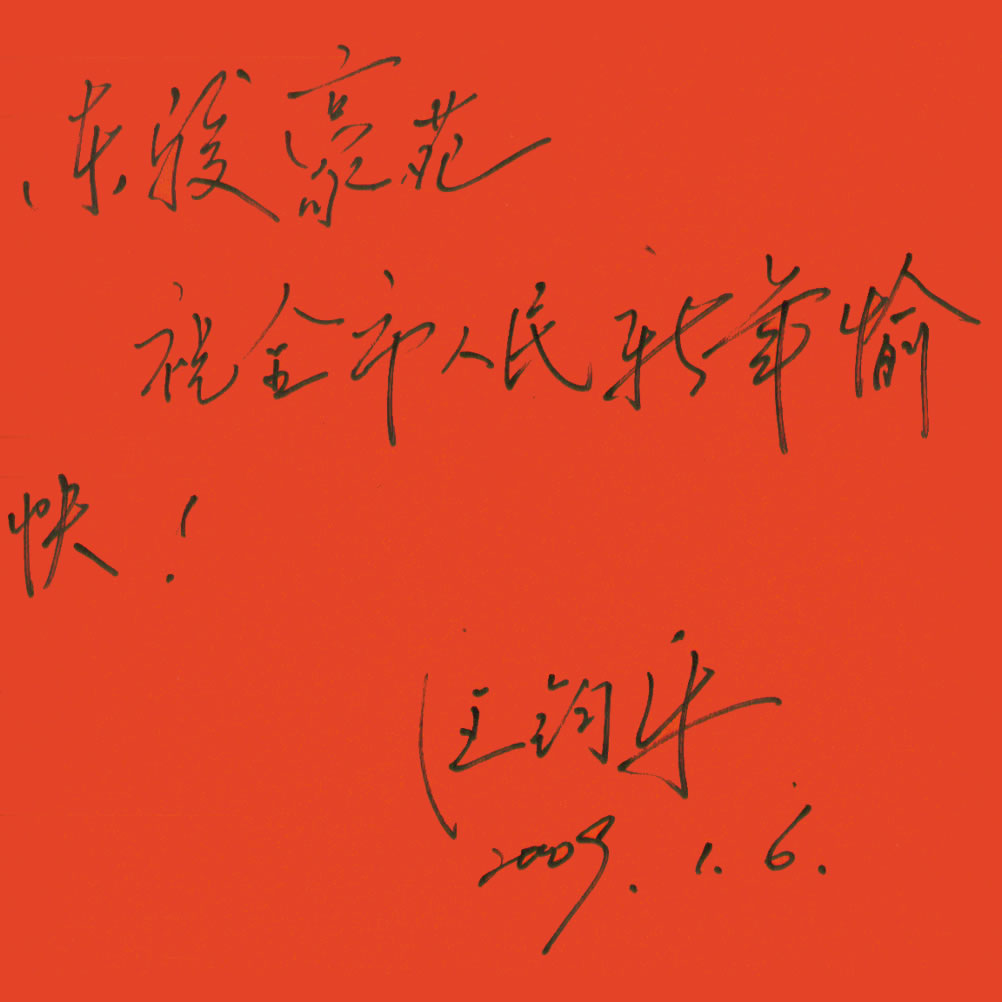 东骏豪苑
祝全市人民新年愉
快！
汪钧年
2009.1.6.